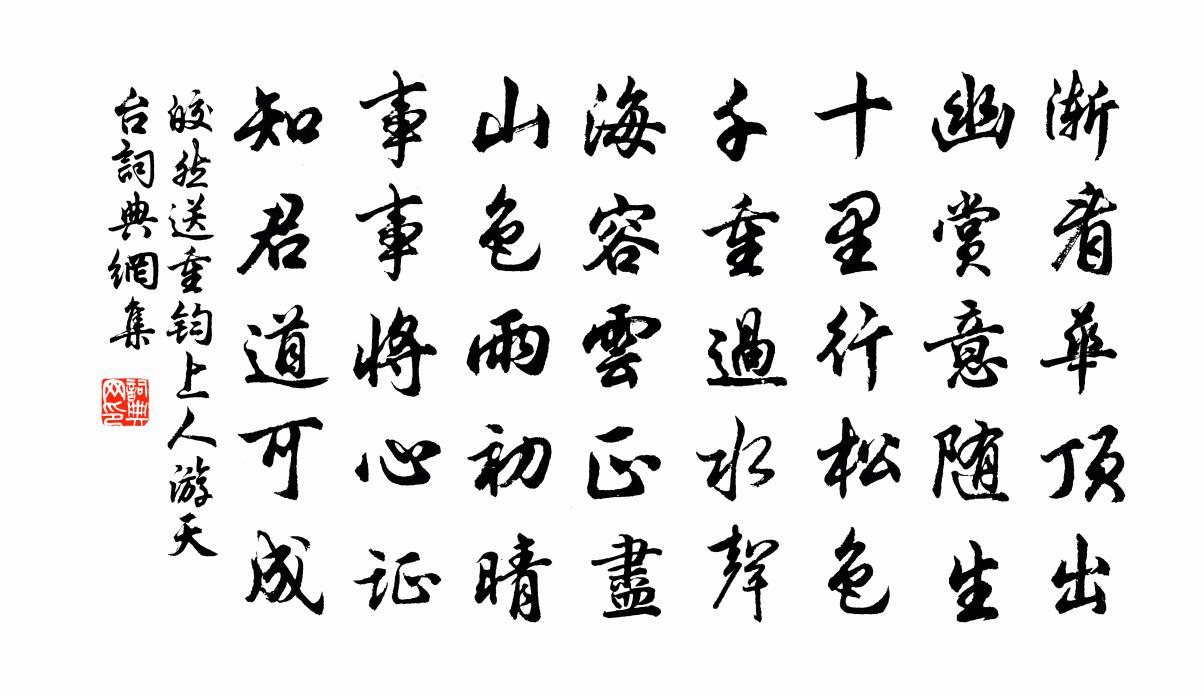 漸看華頂出
幽賞意随生
十里行松色
千重過水聲
海容雲正盡
山色雨初晴
事事將心证
知君道可成
皎然送重钧上人游天
台詞典網集
詞典网印